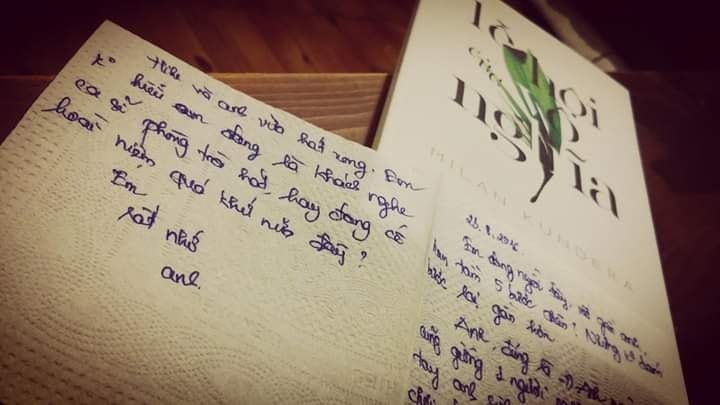 Hihi và anh vừa hát xong. Em
hiểu em đang là khách nghe
ca sĩ phòng trà hát, hay đang cố
hoài niệm quá khứ nữa đây?
Em
rất nhớ
anh.
lễ hội
của
nghĩa
MILAN KUNDERA
Em đang ngồi đây, rất gần anh
hay tầm 5 bước chân? Nhưng k° dám
bước lại gần hơn
Anh đúng là Anh
cũng giống 1 người
tay anh